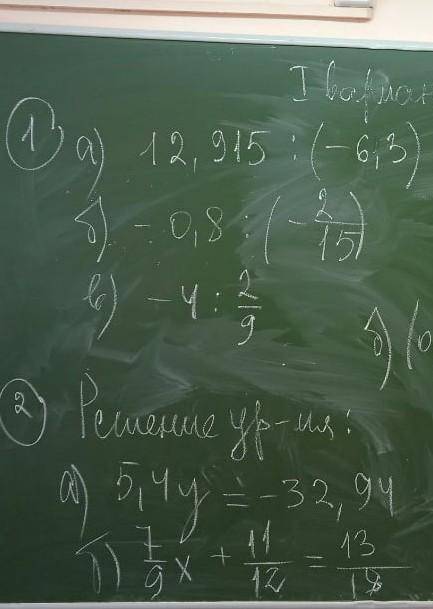 I вариан
1 а) 12,915 : (-6,3)
б) -0,8 : (-2/15)
в) -4 : 2/9
б) (
2 Решение ур-ия:
а) 5,4y = -32,94
б) 7/9 x + 11/12 = 13/18